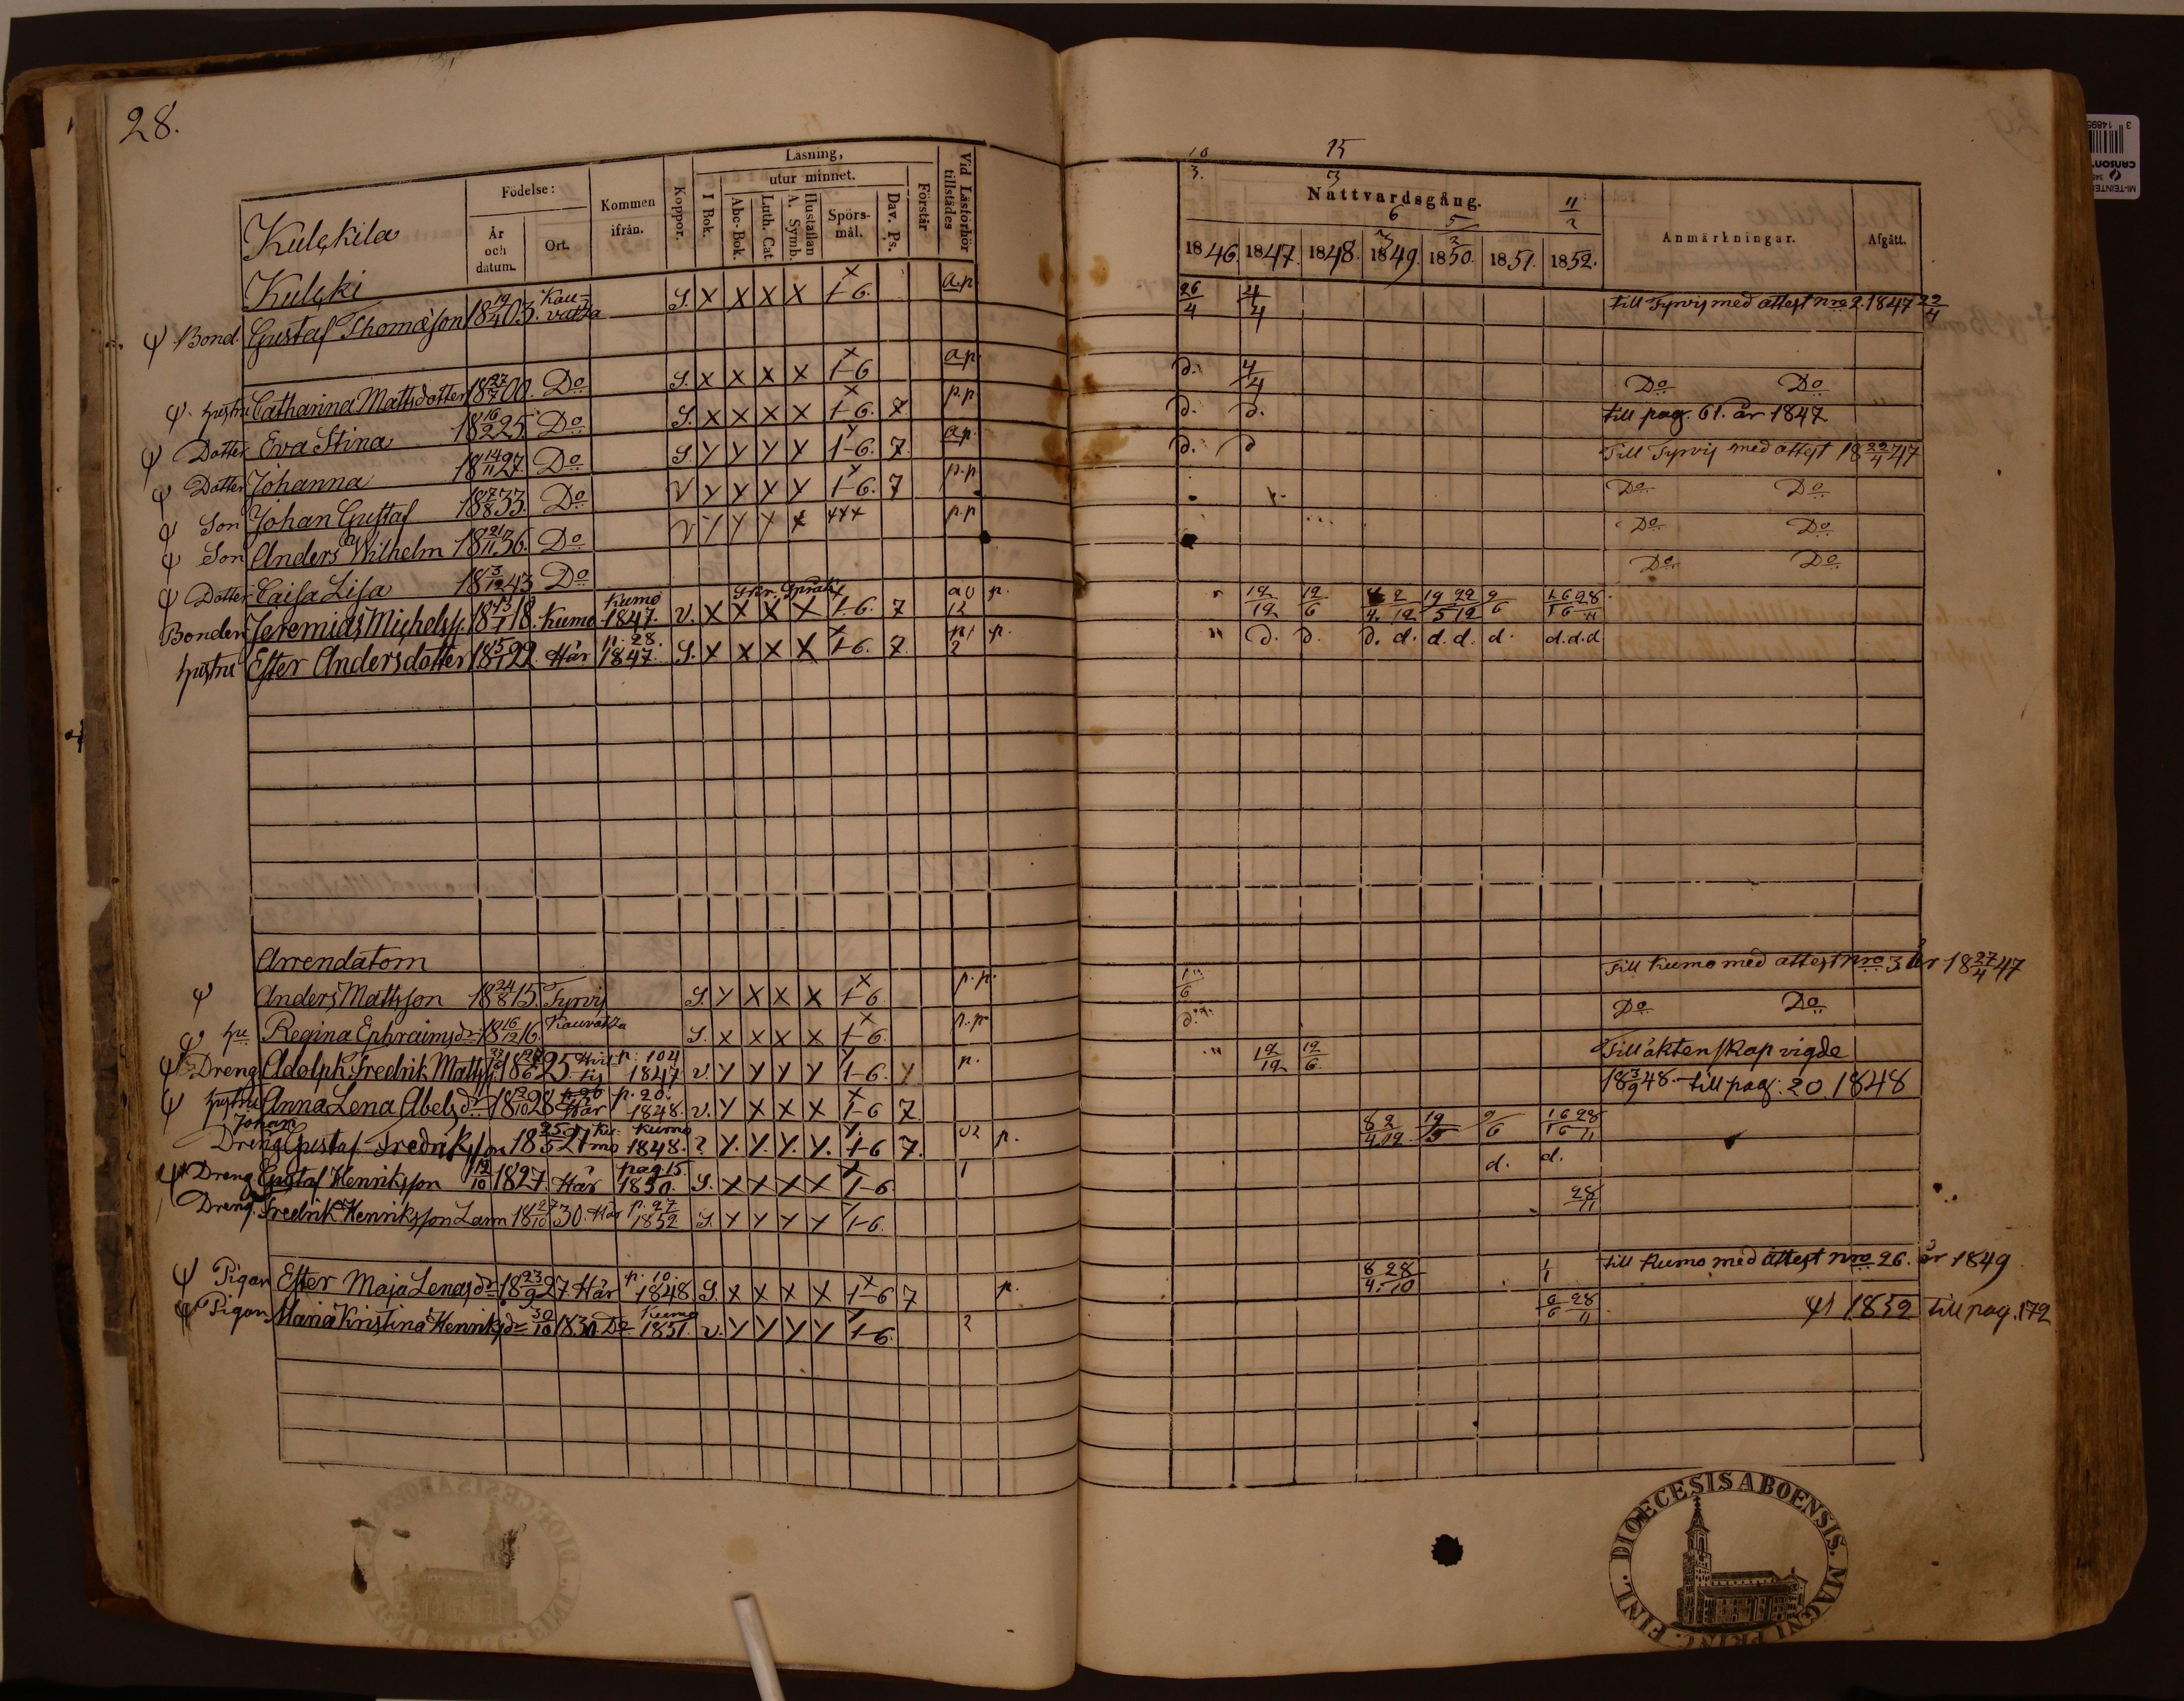 28.
Kulckila
Födelse:
År och datum.
Ort.
Kommen ifrån.
Koppor.
Läsning,
utur minnet.
I Bok.
Abc-Bok.
Luth. Cat
A. Symb.
Hustaflan
Spörs-mål.
Dav. Ps.
Förstår
Vid Läsförhör tillstädes
10/3.
15/3
Nattvardsgång.
6/3
5/3
11/2
1846. 1847. 1848. 1849. 1850. 1851. 1852.
Anmärkningar.
Afgått.
Kulcki
Bond. Gustaf Thomæson 18 19/4 03. Kau-vatza S. X X X X 1-6. a.p. 26/4 4/4 till Tyrvis med attest nro 2. 1847 22/4
hustru Catharina Mattsdotter 18 27/7 00. Do S. X X X X 1-6 a.p. d. 4/4 Do Do
Dotter Eva Stina 18 16/2 25. Do S. X X X X 1-6. 7. p.p. d. d. till pag. 61. år 1847
Dotter Johanna 18 14/11 27. Do S. Y Y Y Y 1-6. 7. a.p. d. d Till Tyrvis med attest 18 22/4 47
Son Johan Gustaf 18 7/8 33. Do V Y Y Y Y 1-6. 7 p.p Do Do
Son Anders Wilhelm 18 21/11 36. Do V Y Y Y X XXX p.p Do Do
Dotter Caisa Lisa 18 3/12 43 Do Do Do
Bonden Jeremias Michelss. 18 13/1 18. Kumo Kumo 1847. v. X X X X 1-6. 7 p. 12/12 12/6 2/12 19/5 22/12 9/6 1/1 6/6 28/11
hustru Ester Andersdotter 18 15/1 22. Här p. 28. 1847. S. X X X X 1-6. 7. p. " d. d. d. d. d. d. d. d.d.d
Arrendatorn
Anders Mattsson 18 24/8 15. Tyrvis S. Y X X X 1-6 p.p. Till Kumo med attest nro 3 år 18 27/4 47
hu Regina Ephraimsdr 18 16/12 16. Kauvatza S. X X X X 1-6. p.p. Do Do
Dreng Adolph Fredrik Matts 25 p: 104 1847 v. Y Y Y Y 1-6. Y p. " 12/12 12/6. Till äktenskap vigde
hustru Anna Lena Abelsdr 28 Här p. 20. 1848. v. Y X X X 1-6 7. 18 3/9 48. till pag. 20. 1848
Johan
Dreng Gustaf Fredriksson 18 25/5 21 Ku-mo Kumo 1848. ? Y. Y. Y. Y. 1-6 7. p. 8/4 2/12. 19/5 9/6 1/1 6/6 28/11
Dreng Gustaf Henriksson 12/10 1827. Här pag. 15. 1850. S. X X X X 1-6 1 d. d.
Dreng. Fredrik Henriksson Lann 18 27/10 30. Här p. 27 1852 S. Y Y Y Y 1-6. 28/11
Pigan Ester Maja Lenasdr 18 23/9 27. Här p. 10. 1848 S. X X X X 1-6 7 p. 8/4. 28/10 1/1 till Kumo med attest nro 26. år 1849
Pigan Maria Kristina Henriksdr 30/10 1830 Do Kumo 1851. v. Y Y Y Y 1-6. 2 6/6 28/11 1852 till pag. 172
DIOECESIS ABOENSIS. MAGNI PRINC. FINL.